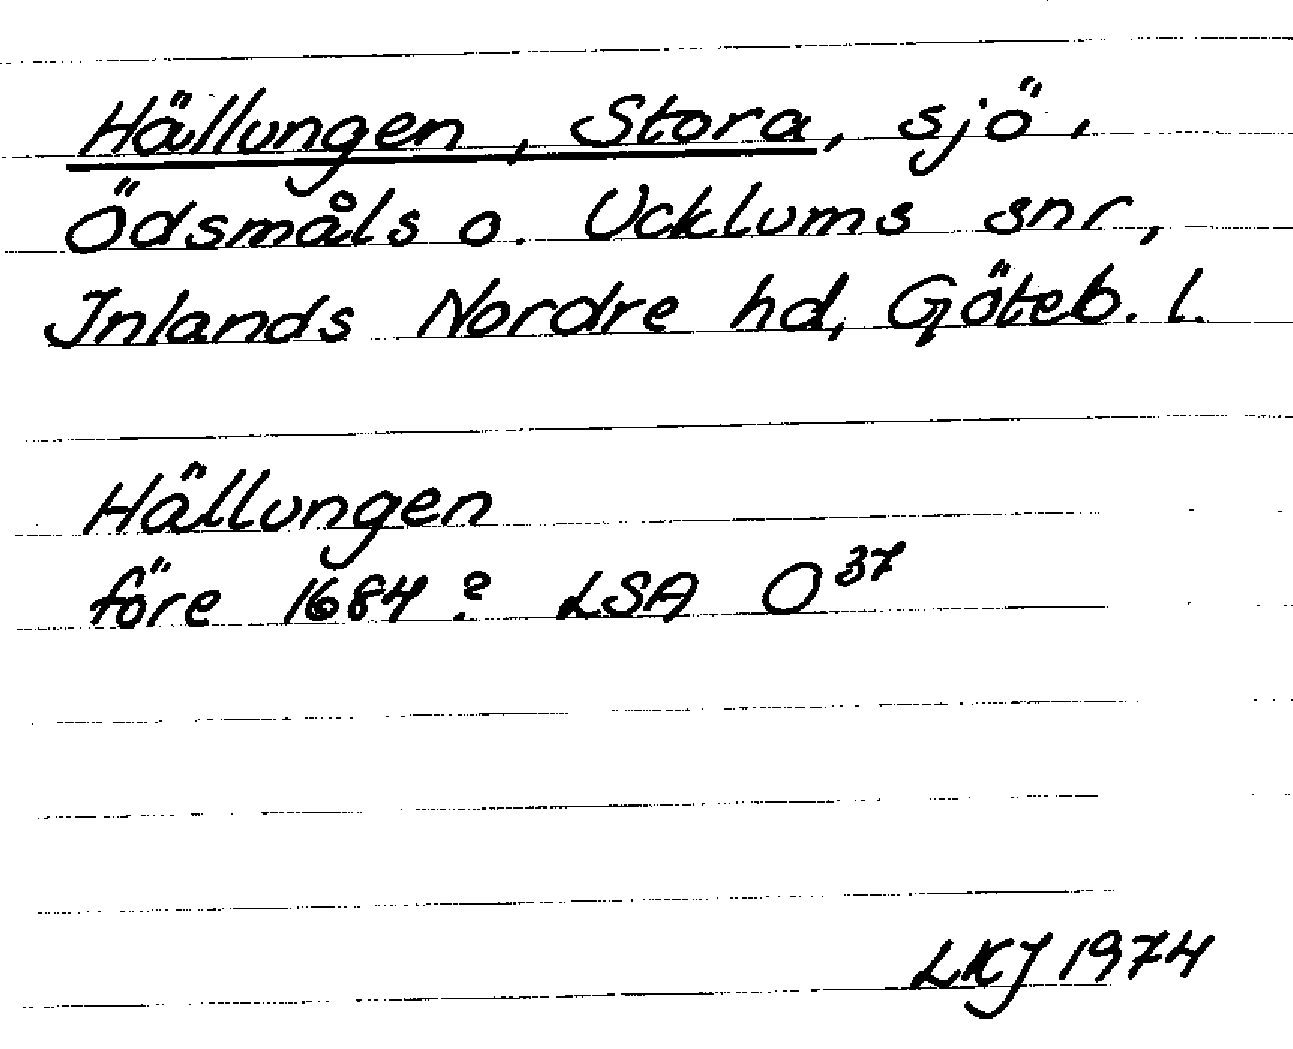 Hällungen, Stora, sjö,
Ödsmåls o. Ucklums snr,
Inlands Nordre hd, Göteb. l.
Hällungen
före 1684? LSA O³⁷
LKJ 1974